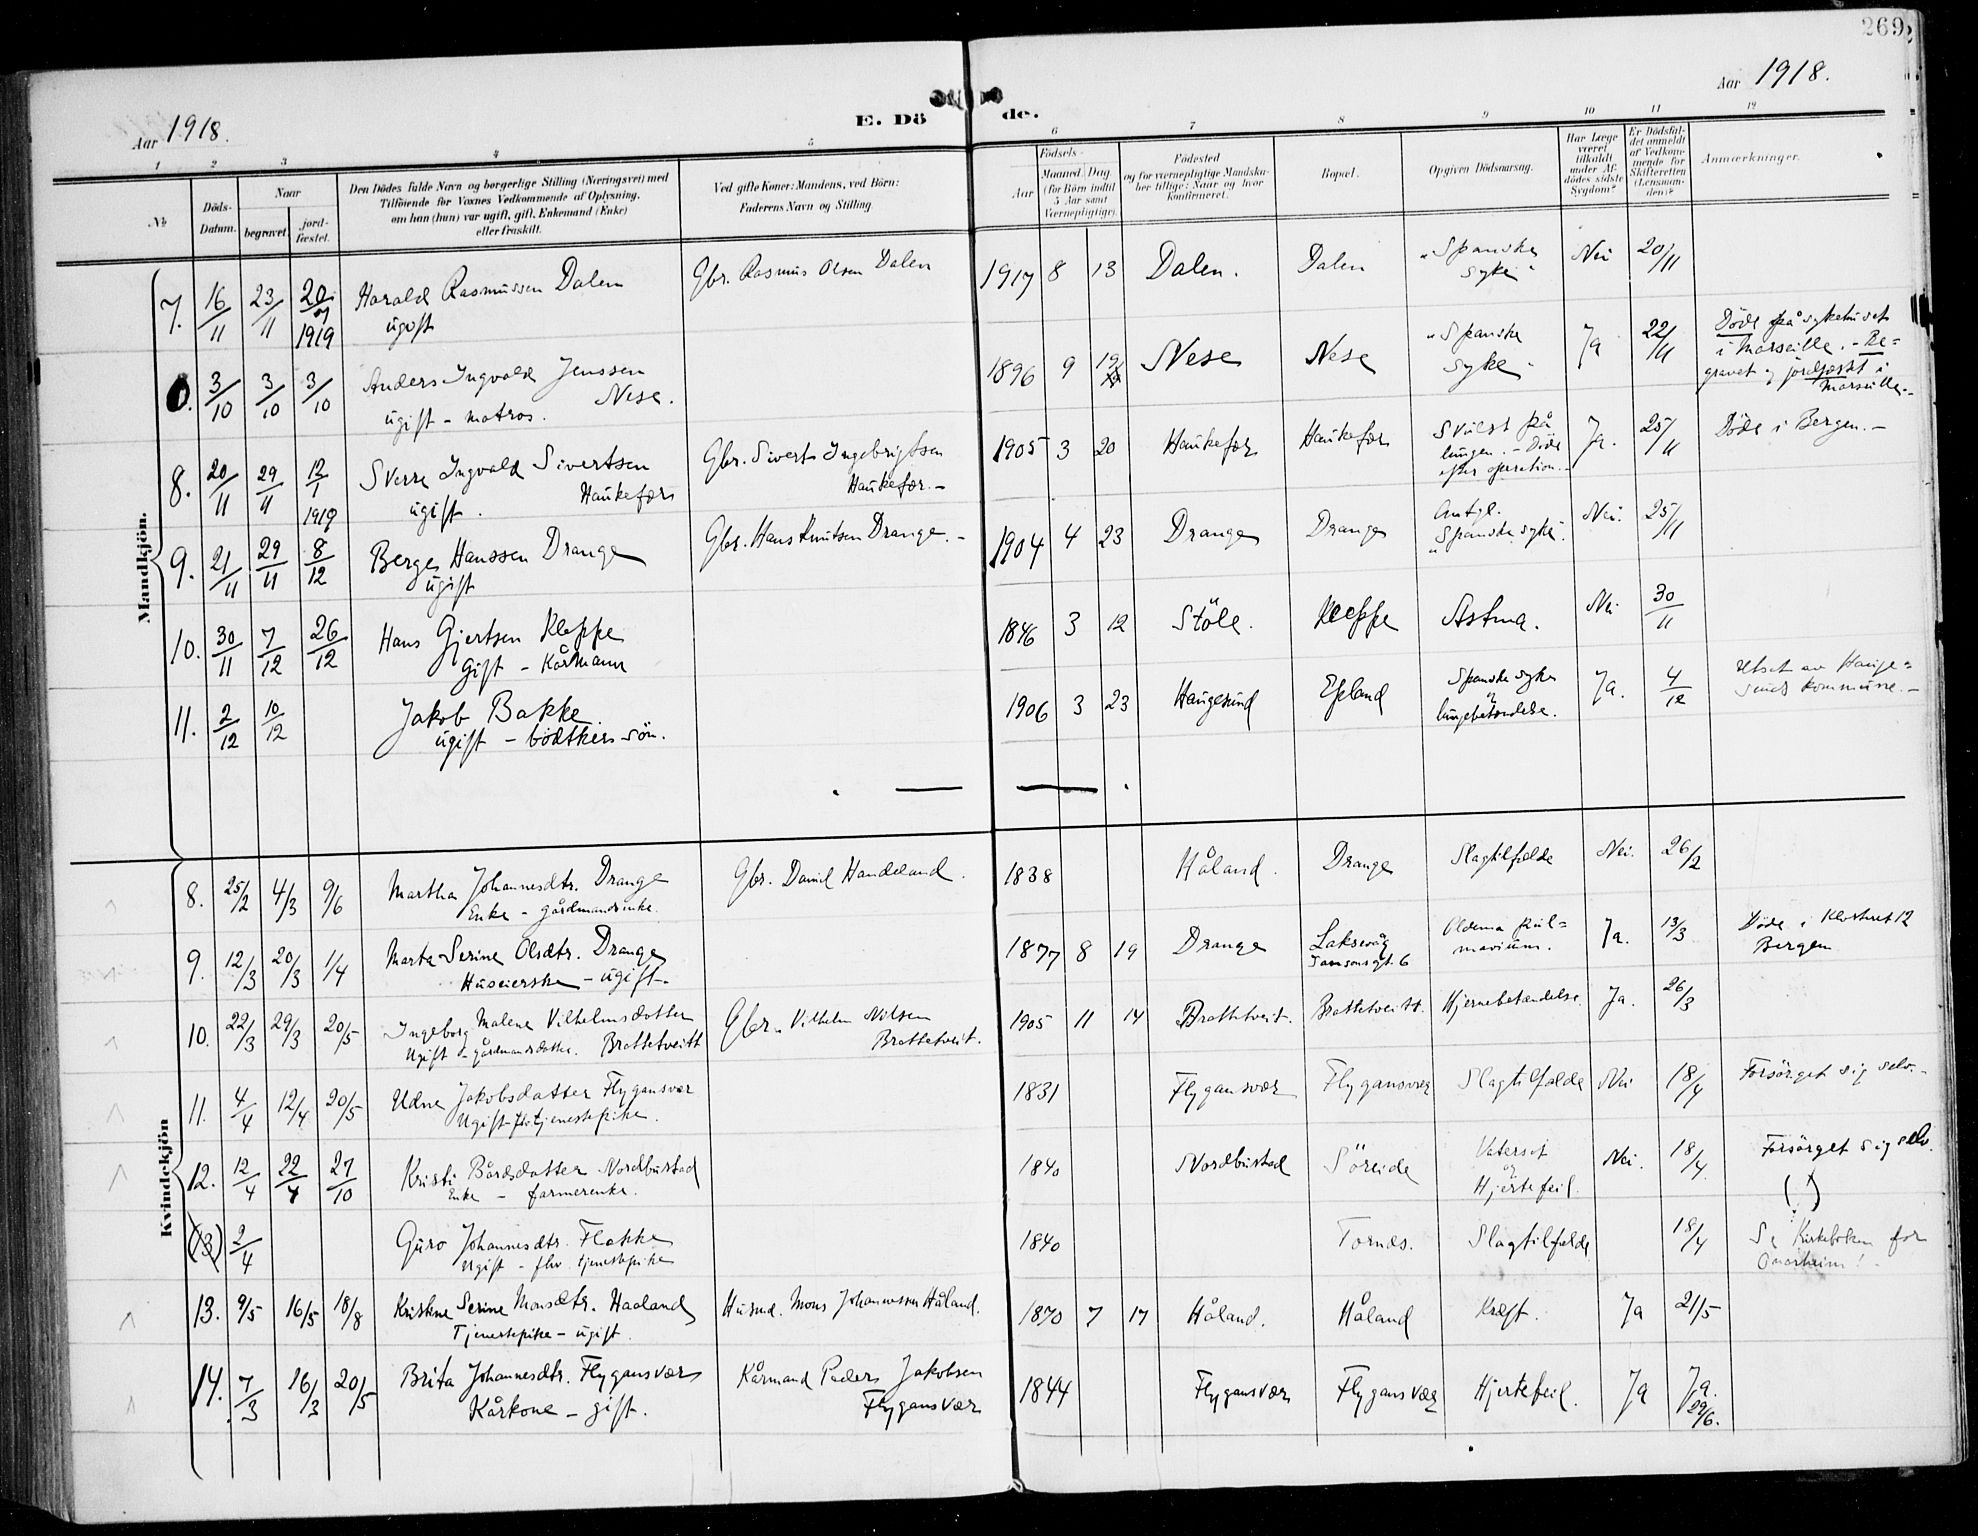 269
Aar 1918.
Aar 1918.
E. Dö de.
1 2 3 4 5 6 7 8 9 10 11 12
No
Döds-
Datum.
Naar
begravet.
jord-
fæstet.
Den Dödes fulde Navn og borgerlige Stilling (Næringsvei) med
Tilföiende for Voxnes Vedkommende af Oplysning,
om han (hun) var ugift, gift, Enkemand (Enke)
eller fraskilt.
Ved gifte Koner: Mandens, ved Börn:
Faderens Navn og Stilling.
Födsels-
Aar
Maaned. Dag
(for Börn indtil
5 Aar samt
Værnepligtige).
Födested
og for værnepligtige Mandska-
ber tillige: Naar og hvor
konfirmeret.
Bopæl.
Opgiven Dödsaarsag.
Har Læge
været
tilkaldt
under Af-
dödes sidste
Sygdom?
Er Dödsfal-
det anmeldt
af Vedkom-
mende for
Skifteretten
(Lensman-
den)?
Anmærkninger.
Mandkjön.
7. 16/11 23/11 20/7 1919 Harald Rasmussen Dalen Gbr. Rasmus Olsen Dalen 1917 8 13 Dalen. Dalen "Spanske Nei 20/11
ugift syke"
0. 3/10 3/10 3/10 Anders Ingvald Jenssen 1896 9 19 Nese Nese "Spanske Ja 22/11 Döde på sykehuset
Nese. syke" i Marseille. - Be-
ugift - matros. gravet og jordfæstet i
Marseille. -
8. 20/11 29/11 12/1 1919 Sverre Ingvald Sivertsen Gbr. Sivert Ingebrigtsen 1905 3 20 Haukefær Haukefær Svulst på Ja. 25/11 Döde i Bergen. -
Haukefær Haukefær. - lungen. - Döde
ugift. efter operation. -
9. 21/11 29/11 8/12 Berge Hanssen Drange Gbr. Hans Knutsen Drange. - 1904 4 23 Drange Drange Antgl. Nei. 25/11
ugift "Spanske syke".
10. 30/11 7/12 26/12 Hans Gjertsen Kleppe 1846 3 12 Stöle. Kleppe Astma. Nei 30/11
Gift - Kårmann
11. 2/12 10/12 Jakob Bakke. 1906 3 23 Haugesund Epland Spanske syke Ja. 4/12 utsat av Hauge-
ugift - bödtkers sön. lungebetændelse. sunds kommune. -
Kvindekjön
8. 25/2 4/3 9/6 Martha Johannesdtr. Drange Gbr. Daniel Handeland. 1838 Håland. Drange Slagtilfælde Nei. 26/2
Enke - gårdmandsenke.
9. 12/3 20/3 1/4 Marta Serine Olsdtr. Drange 1877 8 19 Drange Laksevåg Oldema pul- Ja. 13/3 Döde i Klostret 12
Huseierske - ugift -. Damsgt. 6 monium. Bergen
10. 22/3 29/3 20/5 Ingeborg Malene Vilhelmsdotter Gbr. Vilhelm Nilsen 1905 11 14 Brattetveit. Brattetveit. Hjernebetændelse. Ja. 26/3
Ugift - gårdmandsdatter. Brattetveitt Brattetveit.
11. 4/4 12/4 20/5 Udne Jakobsdatter Flygansvær 1831 Flygansvær Flygansvær Slagtilfælde Nei 18/4 Forsörget sig selv. -
Ugift - flv. tjenestepike.
12. 12/4 22/4 27/10 Kristi Bårdsdatter Nordbustad 1840 Nordbustad Söreide Vatersot Nei. 18/4 Forsörget sig selv.
Enke - farmerenke. og (!)
Hjertefeil.
(13) 2/4 Guro Johannesdtr. Flakke 1840 Tornes. Slagtilfælde 18/4 Se Kirkeboken for
Ugift - flv. tjenestepike Onarheim! -
13. 9/5 16/5 18/8 Kristine Serine Monsdtr. Haaland Husmd. Mons Johannessen Håland. 1870 7 17 Håland. Håland Kræft. Ja 21/5
Tjenestepike - ugift.
14. 7/3 16/3 20/5 Brita Johannesdtr. Flygansvær Kårmand Peder Jakobsen 1844 Flygansvær Flygansvær Hjertefeil. Ja Ja.
Kårkone - gift. Flygansvær 29/6.